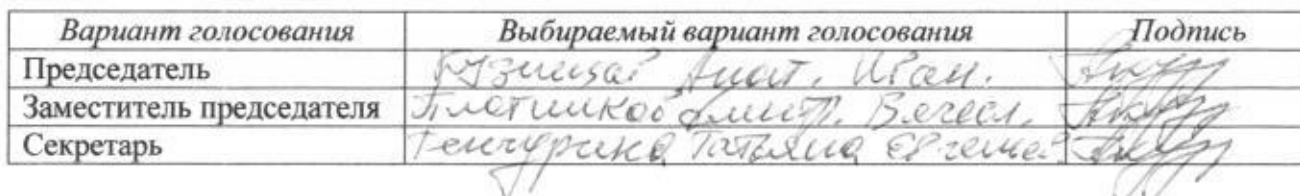 Вариант голосования Выбираемый вариант голосования Подпись
Председатель Анат. Иван.
Заместитель председателя Плотников Дмитр. Вячесл.
Секретарь Татьяна